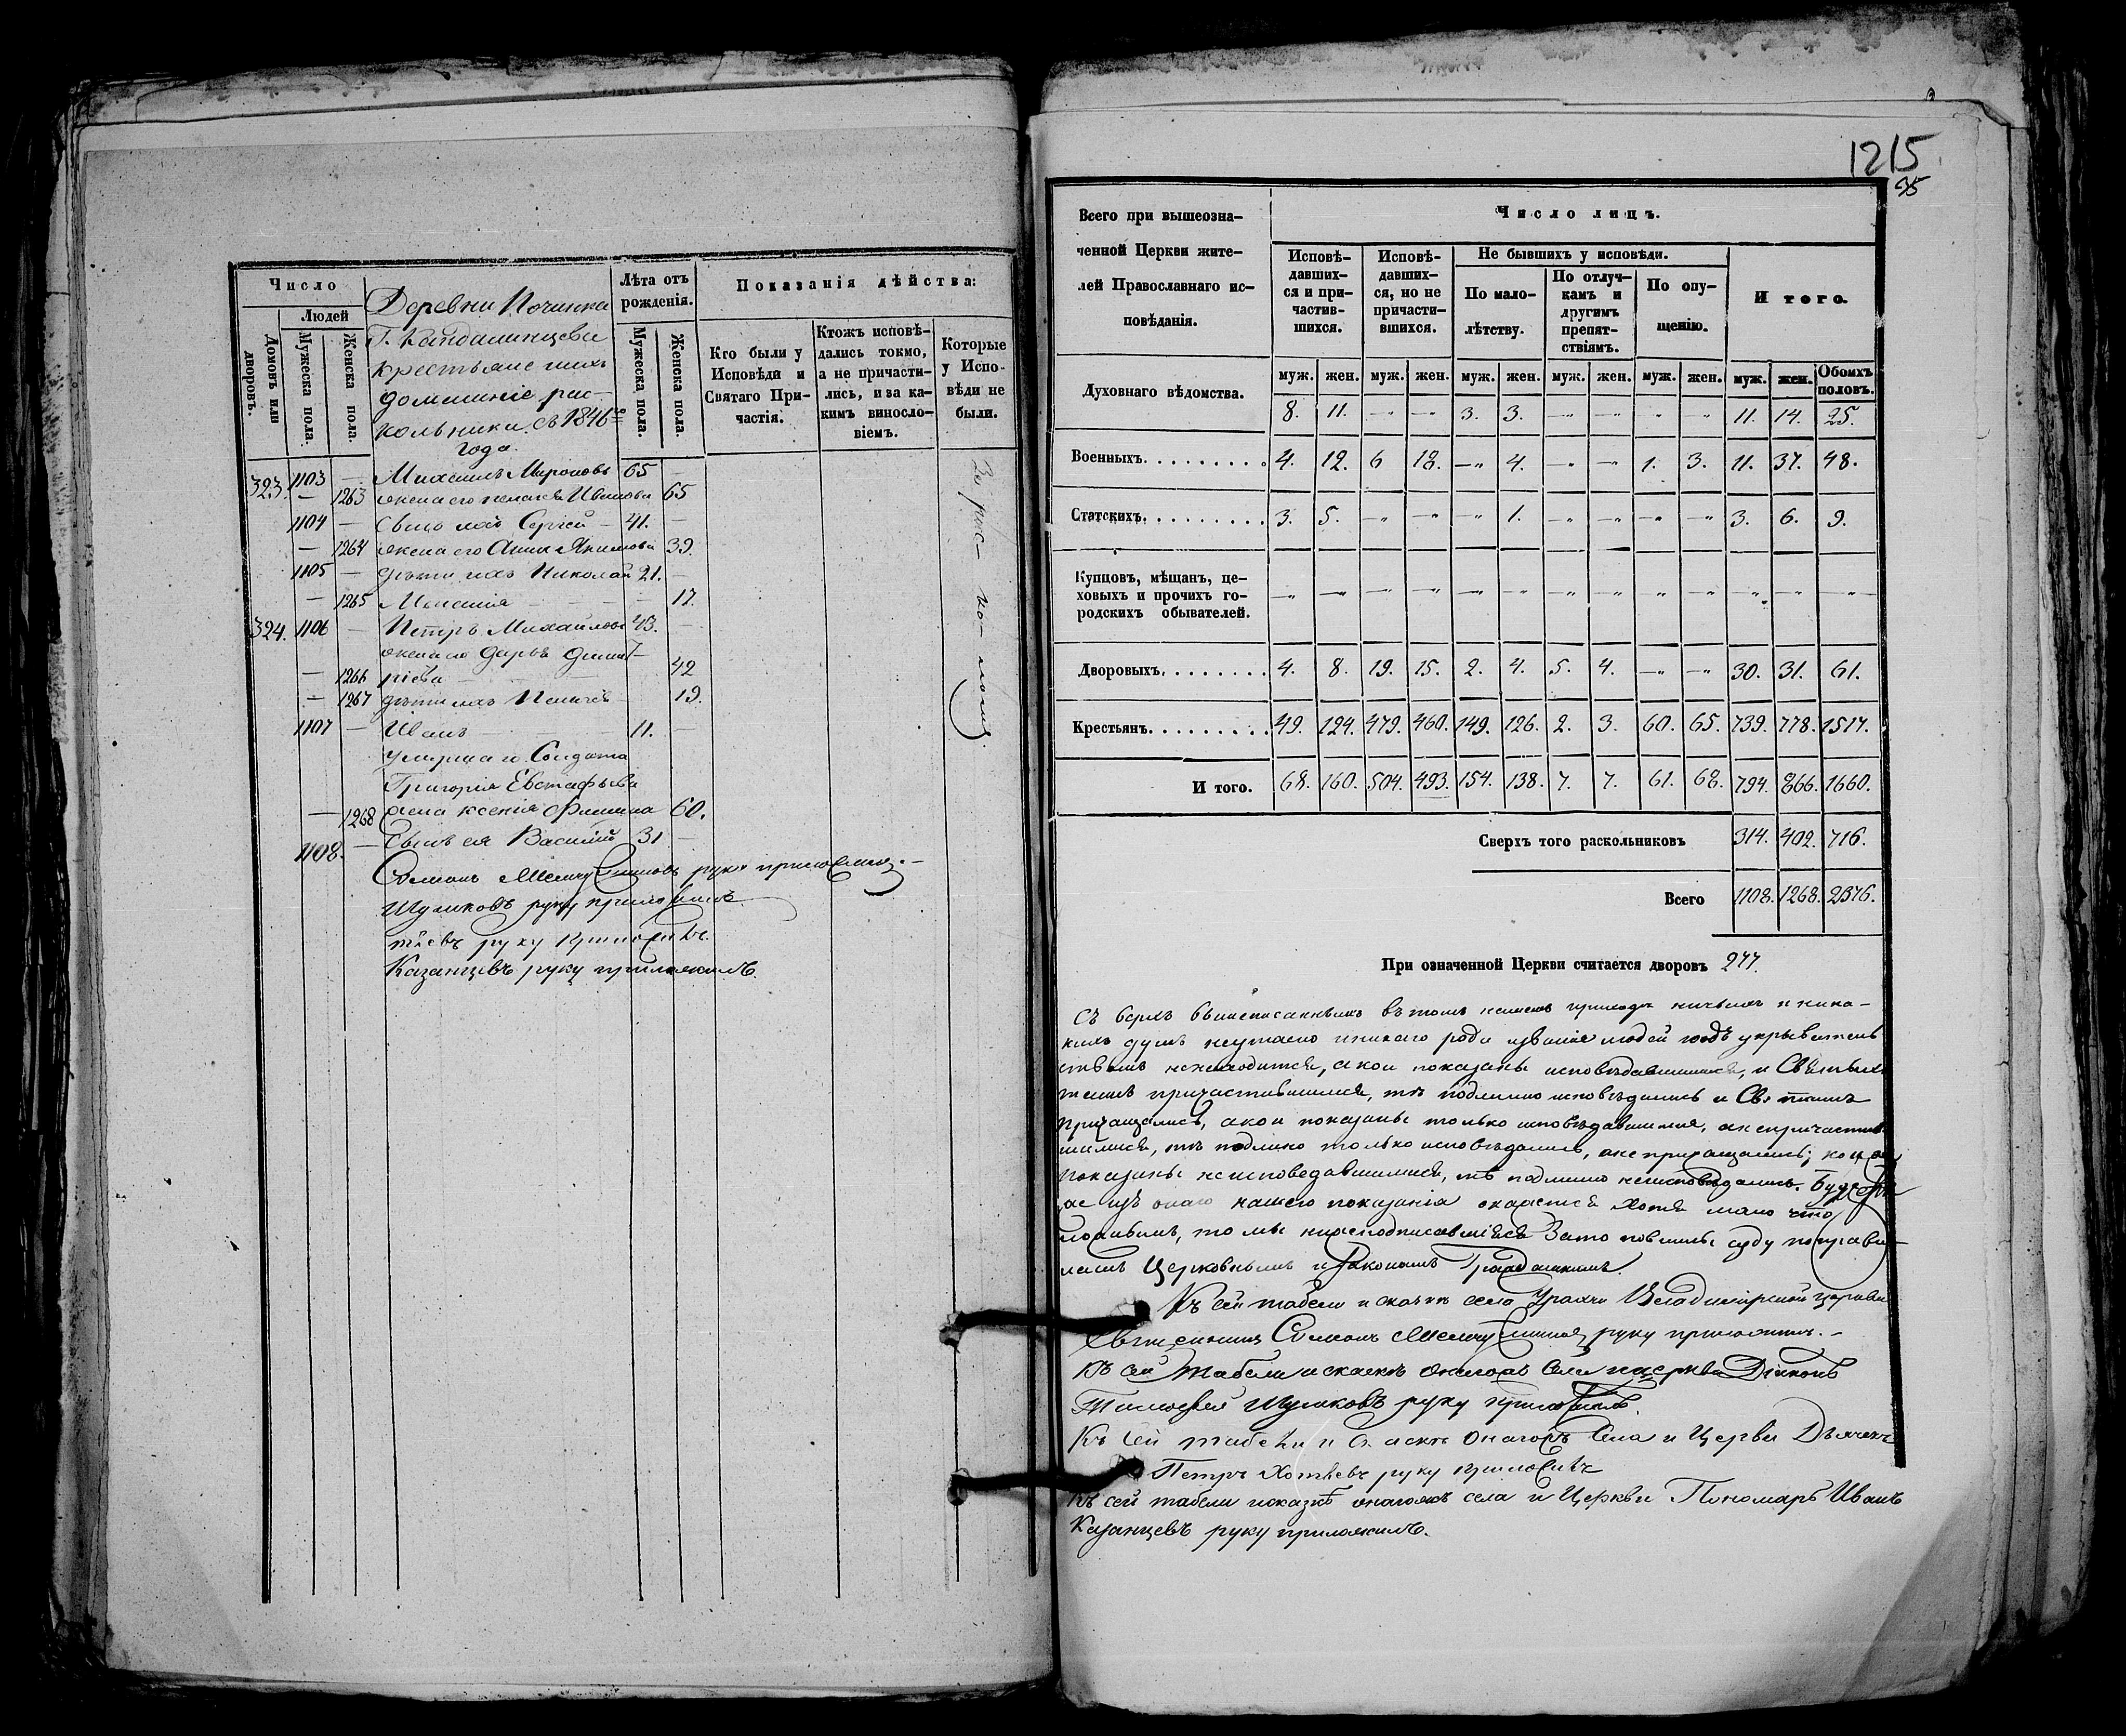 Число
Людей
Домовъ или дворовъ.
Мужеска пола.
Женска пола.
Деревни Починка
крестьяне
кольники съ 1846го
года.
Лѣта отъ рожденія.
Мужеска пола.
Женска пола.
Показанія дѣйства:
Кто были у Исповѣди и Святаго Причастія.
Ктожъ исповѣдались токмо, а не причастились, и за какимъ винословіемъ.
Которые у Исповѣди не были.
323. 1103 — Михаилъ Мироновъ 65 —
— 1263 жена его Иванова 65
1104 — сынъ ихъ Сергѣй — 41. —
— 1264 жена его Анна Якимова 39.
1105 — дѣти ихъ Николай 21. —
— 1265 — — 17.
324. 1106 — Петръ Михайловъ 43. —
жена его Дарья Димит-
— 1266 ріева — 42
— 1267 дѣти ихъ 19.
1107 — Иванъ — 11. —
умершаго Солдата
Григорія Евстафьева
— 1268 жена Ксенія 60.
1108. — сынъ ея Василій 31 —
руку приложилъ. —
Шушковъ руку приложилъ
руку приложилъ.
Казанцевъ руку приложилъ.
За рас-ко-ломъ.
1215
95
Всего при вышеозначенной Церкви жителей Православнаго исповѣданія.
Число лицъ.
Исповѣдавшихся и причастившихся.
Исповѣдавшихся, но не причастившихся.
Не бывшихъ у исповѣди.
По малолѣтству.
По отлучкамъ и другимъ препятствіямъ.
По опущенію.
И того.
муж. жен. муж. жен. муж. жен. муж. жен. муж. жен. муж. жен. Обоихъ половъ.
Духовнаго вѣдомства. 8. 11. —„ —„ 3. 3. —„ —„ „ „ 11. 14. 25.
Военныхъ. 4. 12. 6 18. —„ 4. —„ —„ 1. 3. 11. 37. 48.
Статскихъ. 3. 5. —„ —„ —„ 1. —„ —„ —„ —„ 3. 6. 9.
Купцовъ, мѣщанъ, цеховыхъ и прочихъ городскихъ обывателей. —„ —„ —„ —„ —„ —„ —„ —„ —„ —„ —„ —„ —„
Дворовыхъ. 4. 8. 19. 15. 2. 4. 5. 4. —„ —„ 30. 31. 61.
Крестьянъ. 49. 124. 479. 460. 149. 126. 2. 3. 60. 65. 739. 778. 1517.
И того. 68. 160. 504. 493. 154. 138. 7. 7. 61. 68. 794. 866. 1660.
Сверхъ того раскольниковъ 314. 402. 716.
Всего 1108. 1268. 2376.
При означенной Церкви считается дворовъ 277.
Съ всѣхъ вышеписанныхъ въ томъ нашемъ приходѣ
кихъ душъ неутаено и рода званія людей подъ укрыватель
ствомъ ненаходится, а кои показаны исповѣдавшимися, и Святыхъ
таинъ причастившимися, тѣ подлинно исповѣдались и Св. таинъ
причащались, а кои показаны только исповѣдавшимися, а непричастив
шимися, тѣ подлинно только исповѣдались, а не причащались; кои
показаны неисповедавшимися, тѣ подлинно неисповѣдались. Будеже
изъ онаго нашего показанія окажется хотя мало что
ложнымъ, то мы нижеподписавшіяся за то повинны суду по прави
ламъ Церковнымъ и Законамъ Гражданскимъ.
Къ сей табели и сказкѣ села Церкви
Священникъ руку приложилъ. —
Къ сей табели и сказкѣ онагожъ села и церкви Діаконъ
Тимофей Шушковъ руку приложилъ.
Къ сей табели и сказкѣ онагожъ Села и Церкви Дьячекъ
Петръ руку приложилъ
Къ сей табели исказкѣ онагожъ села и Церкви Пономарь Иванъ
Казанцевъ руку приложилъ.